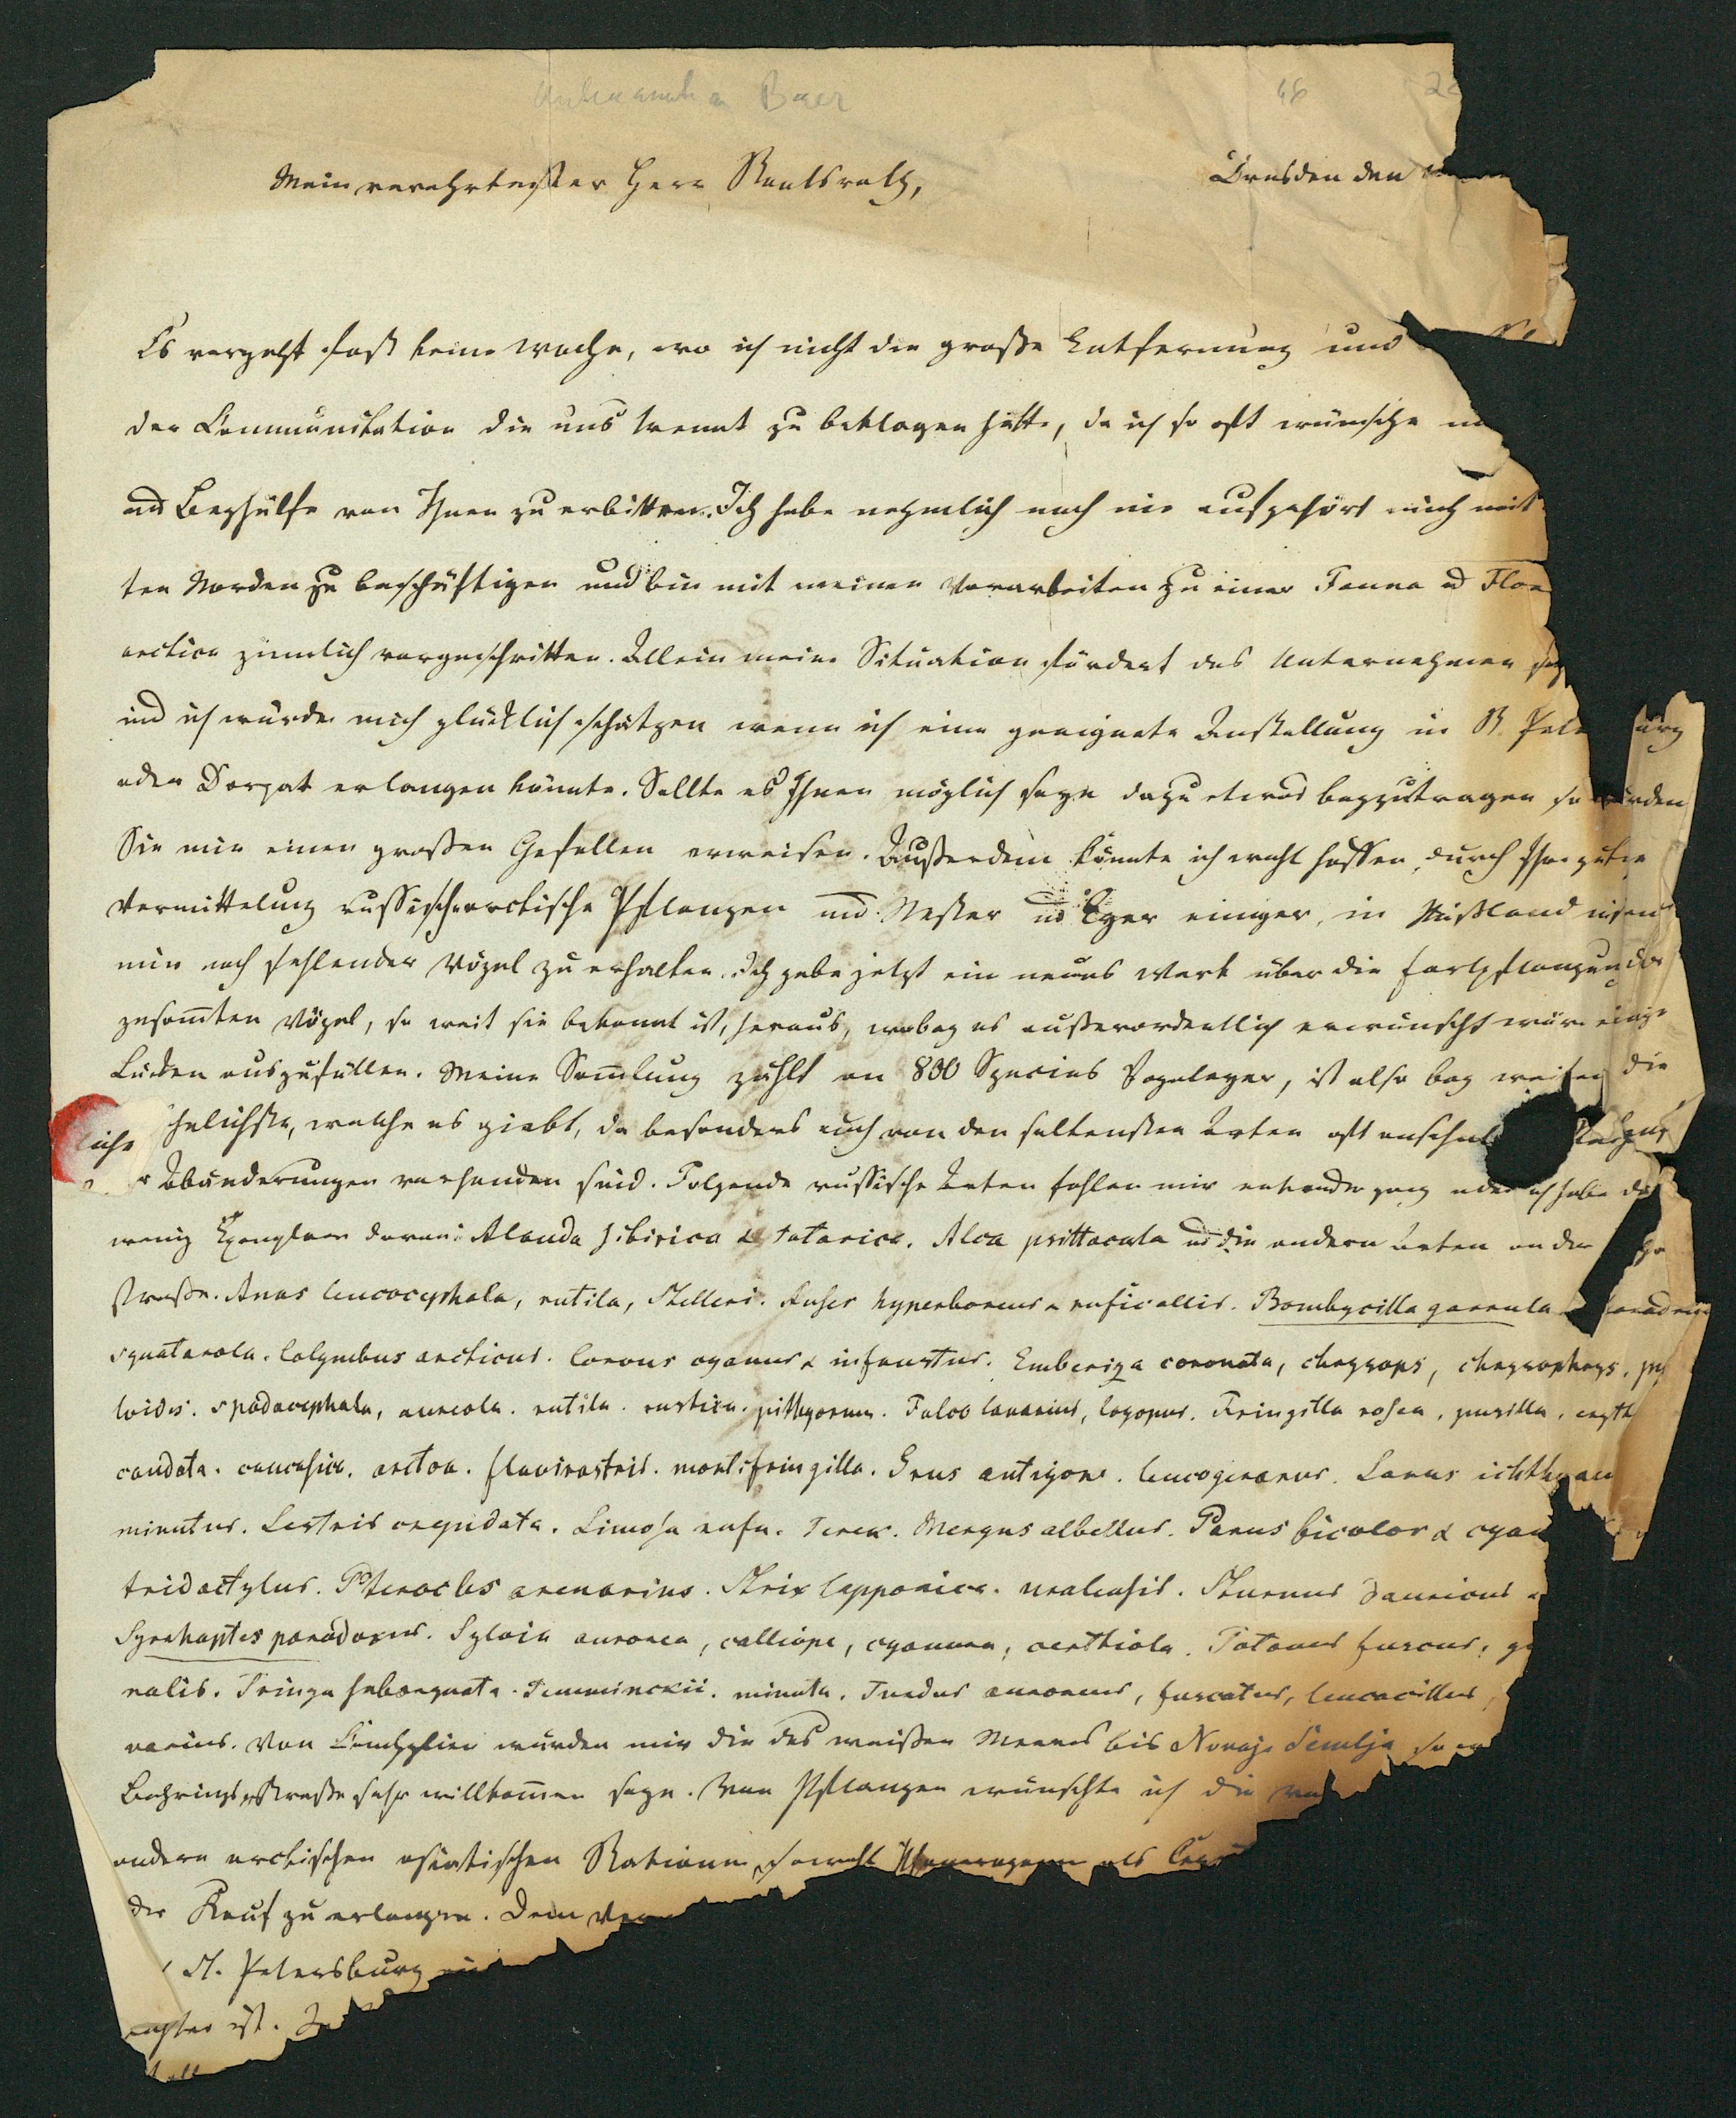 Baer
46
Mein verehrtester Herr Staatsrath,
Dresden den
Es vergeht fast keine Woche, wo ich nicht die große Entfernung und
der Communikation die uns trennt zu beklagen hätte, da ich so oft wünsche
und Beyhülfe von Ihnen zu erbitten. Ich habe nehmlich noch nie aufgehört mich mit
ten Norden zu beschäftigen und bin mit meinen Vorarbeiten zu einer Fauna ud Flor
arctica ziemlich vorgeschritten. Allein meine Situation fördert das Unternehmen
und ich würde mich glücklich schätzen wenn ich eine geeignete Anstellung in St. Pete burg
oder Dorpat erlangen könnte. Sollte es Ihnen möglich seyn dazu etwas beyzutragen so würden
Sie mir einen großen Gefallen erweisen. Außerdem könnte ich wohl hoffen, durch Ihre gütige
Vermittelung russischarctische Pflanzen und Nester ud Eyer einiger, in Rußland
mir noch fehlender Vögel zu erhalten. Ich gebe jetzt ein neues Werk über die Fortpflanzung der
gesamten Vögel, so weit sie bekannt ist, heraus, wobey es außerordentlich erwünscht wäre einige
Lücken auszufüllen. Meine Samlung zählt an 800 Species Vogeleyer, ist also bey weitem die
welche es giebt, da besonders auch von den seltensten Arten oft
Abänderungen vorhanden sind. Folgende russische Arten fehlen mir entweder ganz oder ich habe
wenig Exemplare davon: Alauda sibirica & tatarica. Alca psittacula ud die andern Arten an der
straße. Anas leucocephala, rutila, Stelleri. Anser hyperboreus & ruficollis. Bombycilla garrula
squatarola. Colymbus arcticus. Corvus cyanus & infaustus. Emberiza coronata, chrysops, chrysophrys. py
loides. spodocephala, aureola. rutila. rustica. pithyornus. Falco lanarius, lagopus. Fringilla rosea, pusilla, eryth
caudata. caucasica. arctoa. flavirostris. montifringilla. Grus antigone. leucogeranus. Larus ichthyae
minutus. Lestris crepidata. Limosa rufa. Terek. Mergus albellus. Parus bicolor & cyan
tridactylus. Pterocles arenarius. Strix lapponica. uralensis. Sturnus dauricus
Syrrhaptes paradoxus. Sylvia aurorea, calliope, cyanura, certhiola. Totanus fuscus,
nalis. Tringa subarquata. Temminckii. minuta. Turdus auroreus, fuscatus, leucocillus
varius. Von Conchylien würden mir die des weißen Meeres bis Novaja Semlja
Behringsstraße sehr willkommen seyn. Von Pflanzen wünschte ich die
andern arctischen asiatischen Stationen sowohl Phanerogamen als
der Kauf zu erlangen. Dem
St. Petersburg
ist.